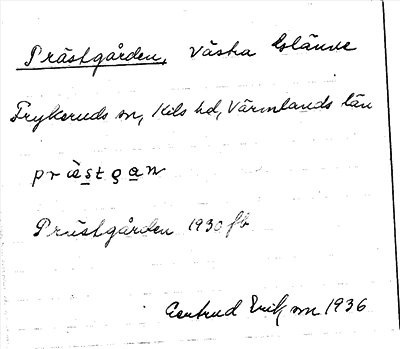 Prästgården, Västra Eslände
Frykeruds sn, Kils hd, Värmlands län
präst gan
Prästgården 1930 fb
Gertrud Erik sn 1936